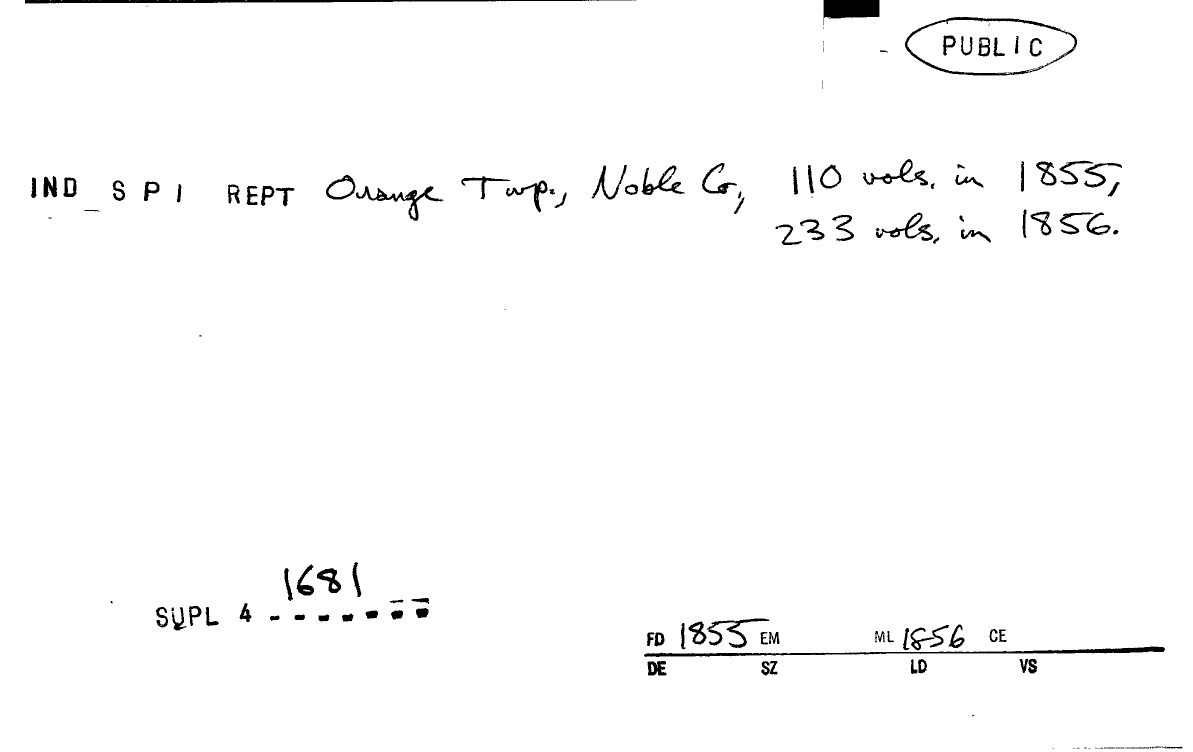 PUBLIC
IND SPI REPT Orange Twp., Noble Co., 110 vols. in 1855,
233 vols. in 1856.
1681
SUPL 4 - - - - - - -
FD 1855 EM ML 1856 CE
DE SZ LD VS